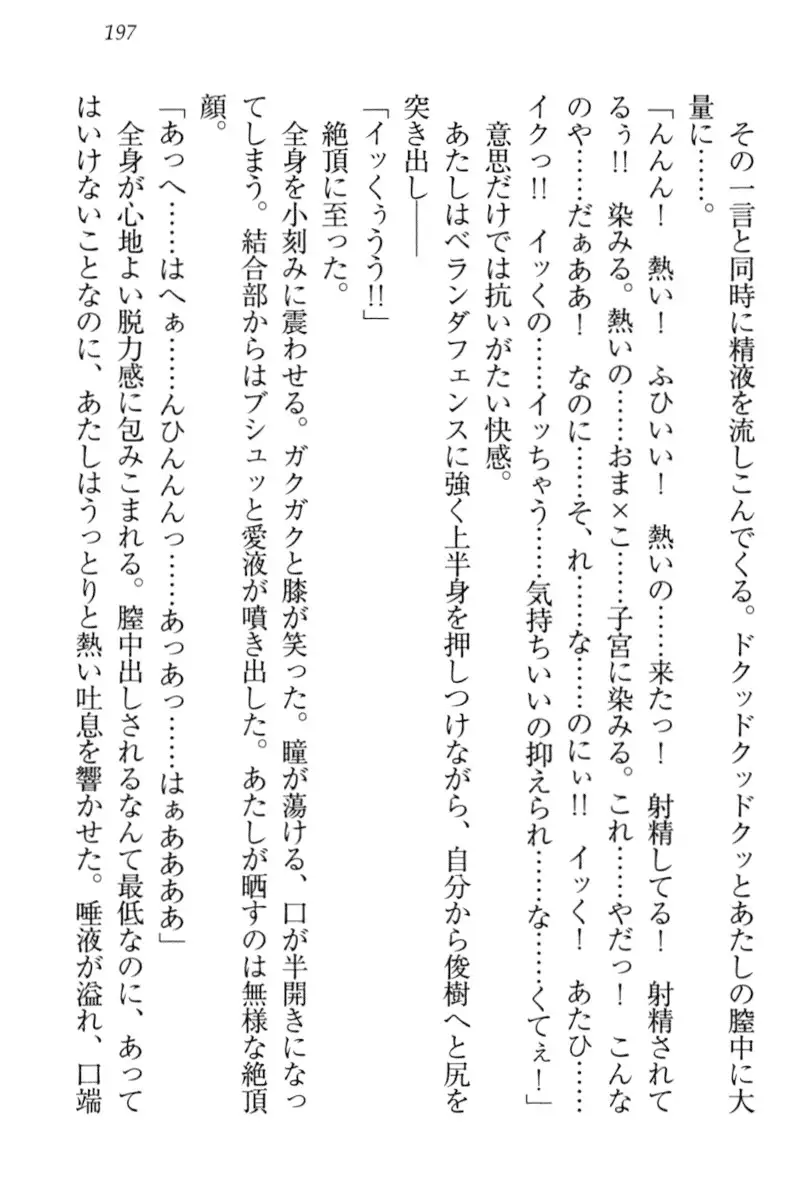 197
その一言と同時に精液を流しこんでくる。ドクッドクッドクッとあたしの膣中に大
量に……。
「んんん！　熱い！　ふひいい！　熱いの……来たっ！　射精してる！　射精されて
るぅ!!　染みる。熱いの……おま×こ……子宮に染みる。これ……やだっ！　こんな
のや……だぁああ！　なのに……そ、れ……な……のにぃ!!　イッく！　あたひ……
イクっ!!　イッくの……イッちゃう……気持ちいいの抑えられ……な……くてぇ！」
意思だけでは抗いがたい快感。
あたしはベランダフェンスに強く上半身を押しつけながら、自分から俊樹へと尻を
突き出し――
「イッくぅうう!!」
絶頂に至った。
全身を小刻みに震わせる。ガクガクと膝が笑った。瞳が蕩ける、口が半開きになっ
てしまう。結合部からはブシュッと愛液が噴き出した。あたしが晒すのは無様な絶頂
顔。
「あっへ……はへぁ……んひんんんっ……あっあっ……はぁああああ」
全身が心地よい脱力感に包みこまれる。膣中出しされるなんて最低なのに、あって
はいけないことなのに、あたしはうっとりと熱い吐息を響かせた。唾液が溢れ、口端